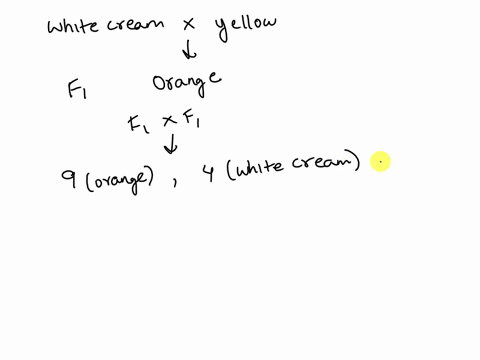 white cream x yellow
↓
F1 Orange
F1 x F1
↓
9 (orange) , 4 (white cream)